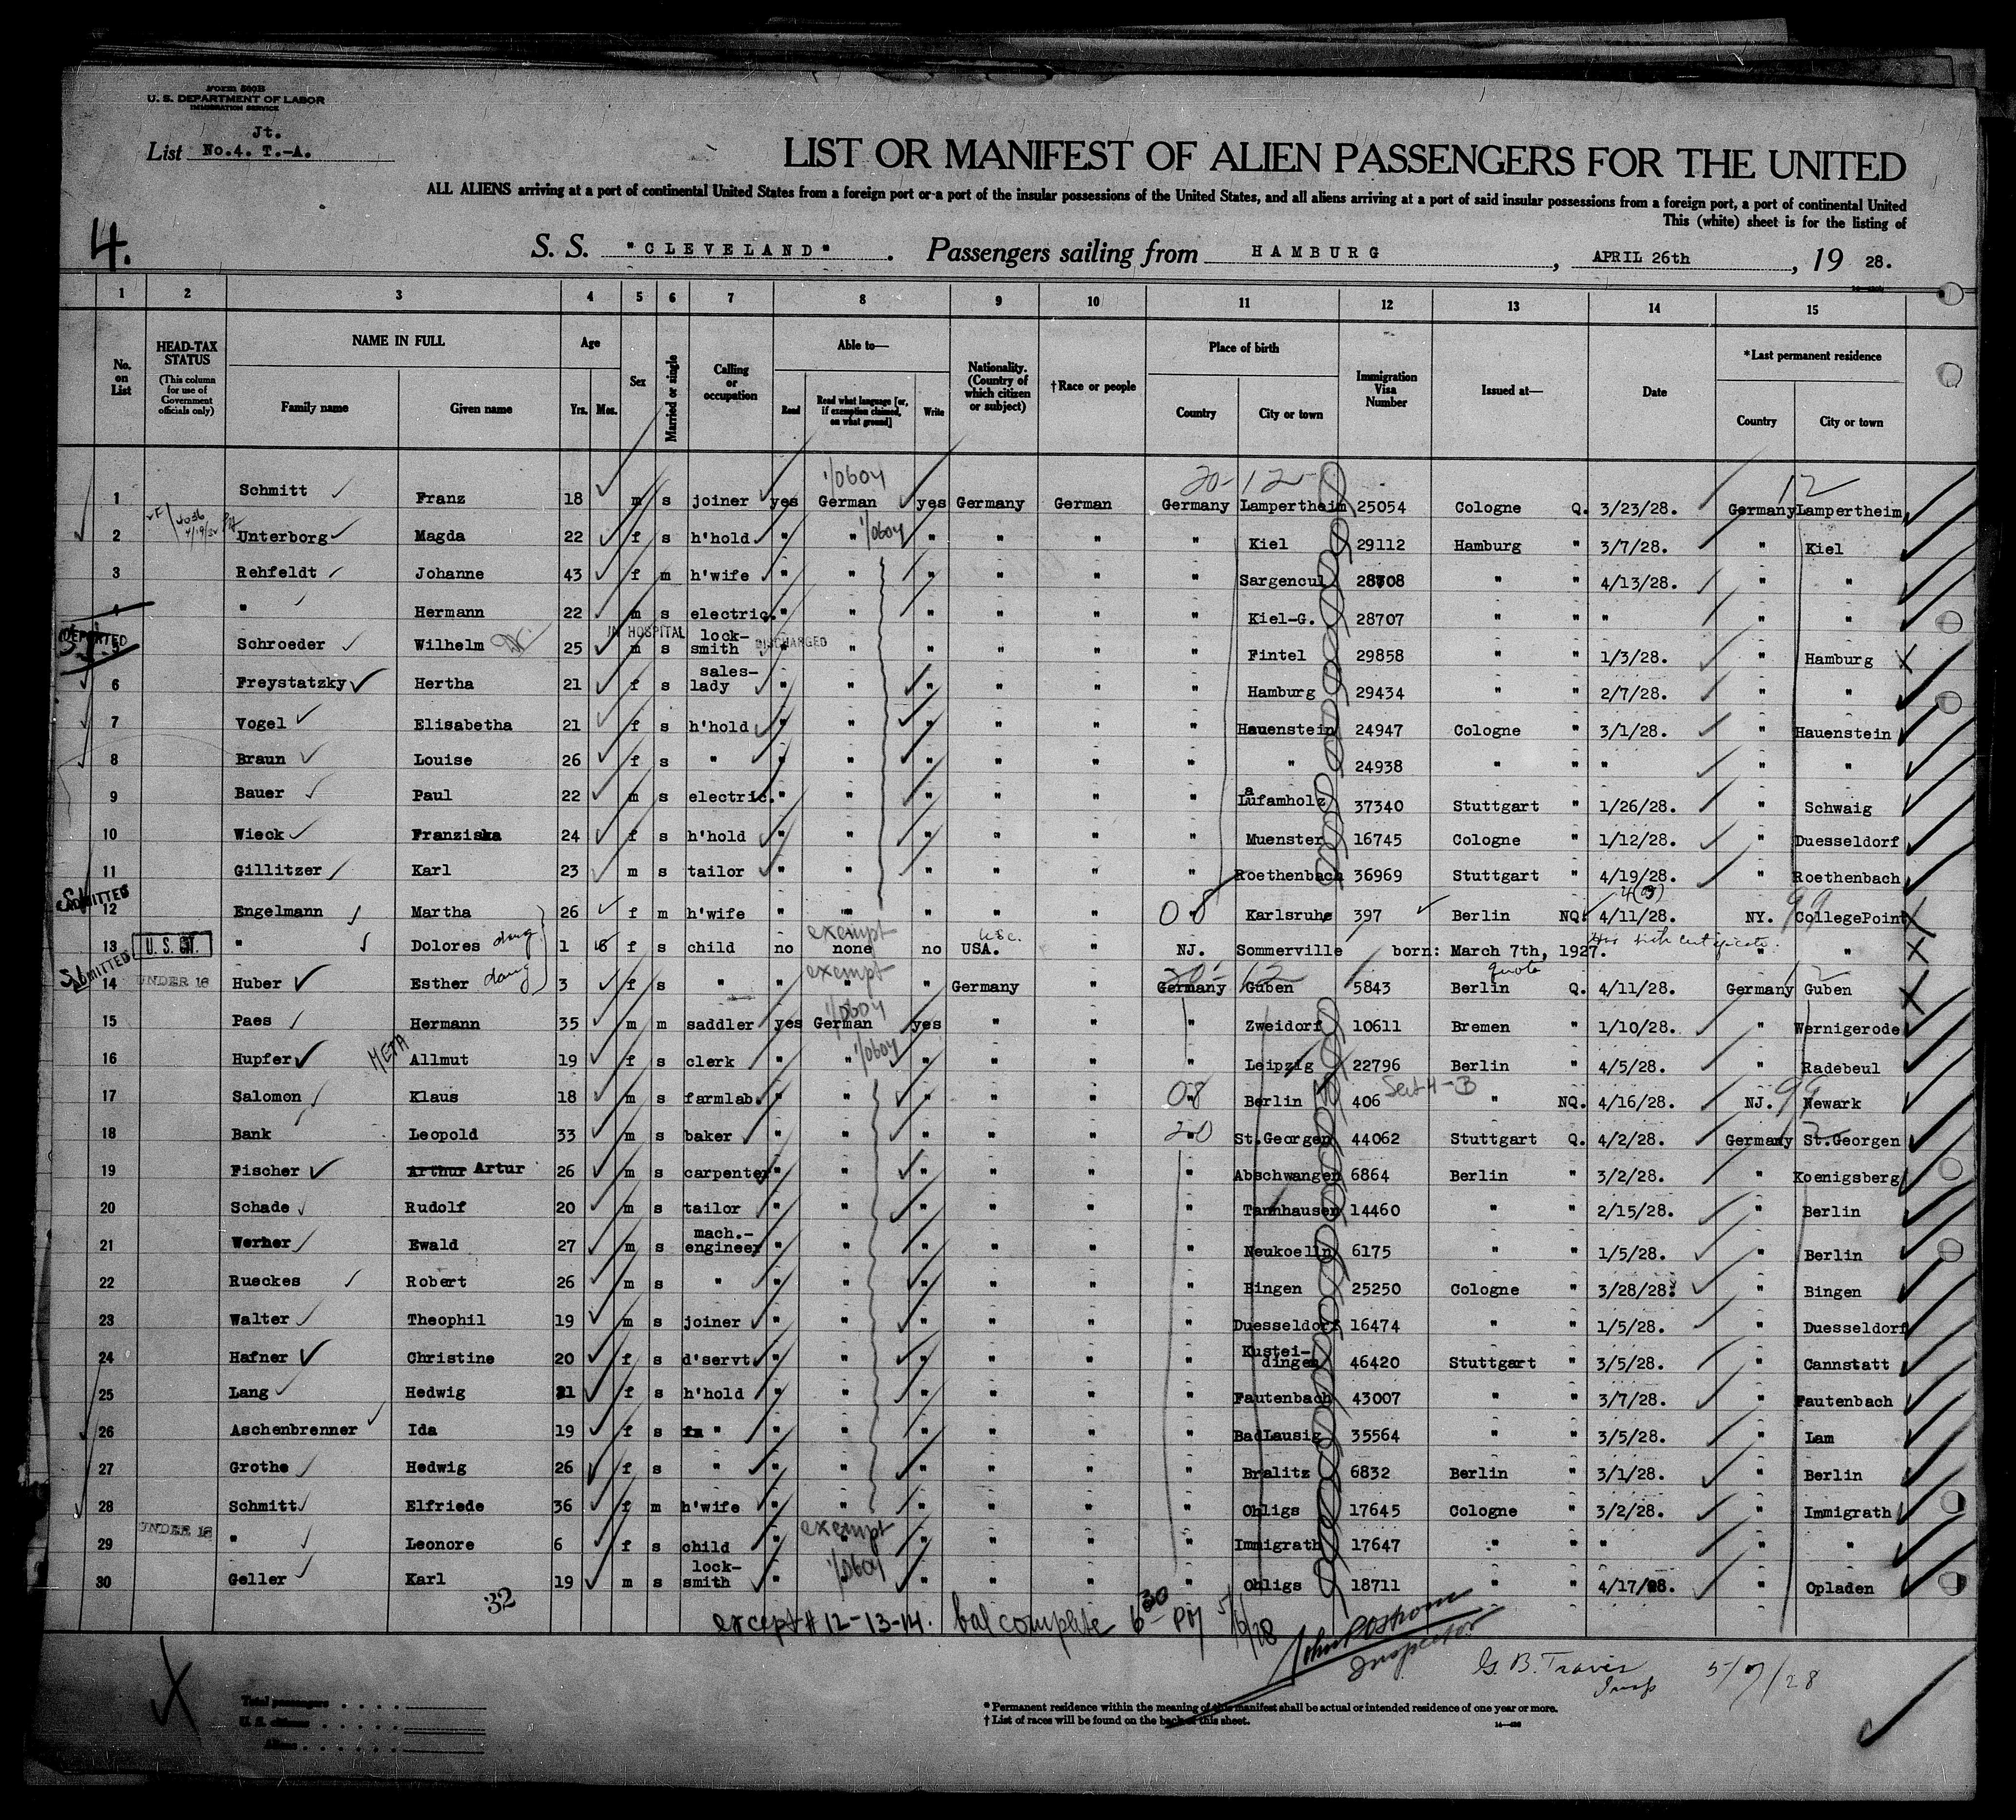 Form 500B
U. S. DEPARTMENT OF LABOR
IMMIGRATION SERVICE
Jt.
List No.4. T.-A.
LIST OR MANIFEST OF ALIEN PASSENGERS FOR THE UNITED
ALL ALIENS arriving at a port of continental United States from a foreign port or a port of the insular possessions of the United States, and all aliens arriving at a port of said insular possessions from a foreign port, a port of continental United
This (white) sheet is for the listing of
4.
S. S. "CLEVELAND" . Passengers sailing from HAMBURG , APRIL 26th , 19 28.
1 2 3 4 5 6 7 8 9 10 11 12 13 14 15
No. on List
HEAD-TAX STATUS (This column for use of Government officials only)
NAME IN FULL Family name Given name
Age Yrs. Mos.
Sex
Married or single
Calling or occupation
Able to— Read Read what language [or, if exemption claimed, on what ground] Write
Nationality. (Country of which citizen or subject)
†Race or people
Place of birth Country City or town
Immigration Visa Number
Issued at—
Date
*Last permanent residence Country City or town
1/0604 20-12 12
1 Schmitt Franz 18 m s joiner yes German yes Germany German Germany Lampertheim 25054 Cologne Q. 3/23/28. Germany Lampertheim
2 Unterborg Magda 22 f s h'hold " " 1/0604 " " " " Kiel 29112 Hamburg " 3/7/28. " Kiel
3 Rehfeldt Johanne 43 f m h'wife " " " " " " Sargencul 28708 " " 4/13/28. " "
4 " Hermann 22 m s electric. " " " " " " Kiel-G. 28707 " " " " "
DEPORTED IN HOSPITAL DISCHARGED
5 Schroeder Wilhelm 25 m s lock-smith " " " " " " Fintel 29858 " " 1/3/28. " Hamburg
6 Freystatzky Hertha 21 f s sales-lady " " " " " " Hamburg 29434 " " 2/7/28. " "
7 Vogel Elisabetha 21 f s h'hold " " " " " " Hauenstein 24947 Cologne " 3/1/28. " Hauenstein
8 Braun Louise 26 f s " " " " " " " " 24938 " " " " "
9 Bauer Paul 22 m s electric. " " " " " " Laufamholz 37340 Stuttgart " 1/26/28. " Schwaig
10 Wieck Franziska 24 f s h'hold " " " " " " Muenster 16745 Cologne " 1/12/28. " Duesseldorf
11 Gillitzer Karl 23 m s tailor " " " " " " Roethenbach 36969 Stuttgart " 4/19/28. " Roethenbach
ADMITTED
12 Engelmann Martha 26 f m h'wife " " " " " " Karlsruhe 397 Berlin NQ. 4/11/28. NY. CollegePoint
exempt usc.
13 U. S. CIT. " Dolores daug 1 f s child no none no USA. " NJ. Sommerville born: March 7th, 1927. Has birth certificate. " "
ADMITTED exempt 20- 12 quota 12
14 UNDER 16 Huber Esther daug 3 f s " " " " Germany " Germany Guben 5843 Berlin Q. 4/11/28. Germany Guben
1/0604
15 Paes Hermann 35 m m saddler yes German yes " " " Zweidorf 10611 Bremen " 1/10/28. " Wernigerode
16 Hupfer META Allmut 19 f s clerk " " 1/0604 " " " " Leipzig 22796 Berlin " 4/5/28. " Radebeul
17 Salomon Klaus 18 m s farmlab. " " " " " 08 Berlin 406 Sect 4-B " NQ. 4/16/28. NJ. 99 Newark
18 Bank Leopold 33 m s baker " " " " " 20 St.Georgen 44062 Stuttgart Q. 4/2/28. Germany St.Georgen
19 Fischer Arthur Artur 26 m s carpenter " " " " " " Abschwangen 6864 Berlin " 3/2/28. " Koenigsberg
20 Schade Rudolf 20 m s tailor " " " " " " Tannhausen 14460 " " 2/15/28. " Berlin
21 Werner Ewald 27 m s mach.-engineer " " " " " " Neukoelln 6175 " " 1/5/28. " Berlin
22 Rueckes Robert 26 m s " " " " " " " Bingen 25250 Cologne " 3/28/28. " Bingen
23 Walter Theophil 19 m s joiner " " " " " " Duesseldorf 16474 " " 1/5/28. " Duesseldorf
24 Hafner Christine 20 f s d'servt. " " " " " " Kustei-dingen 46420 Stuttgart " 3/5/28. " Cannstatt
25 Lang Hedwig 21 f s h'hold " " " " " " Fautenbach 43007 " " 3/7/28. " Fautenbach
26 Aschenbrenner Ida 19 f s " " " " " " " BadLausig 35564 " " 3/5/28. " Lam
27 Grothe Hedwig 26 f s " " " " " " " Bralitz 6832 Berlin " 3/1/28. " Berlin
28 Schmitt Elfriede 36 f m h'wife " " " " " " Ohligs 17645 Cologne " 3/2/28. " Immigrath
UNDER 16 exempt
29 " Leonore 6 f s child " " " " " " Immigrath 17647 " " " " "
30 Geller Karl 19 m s lock-smith " 1/0604 " " " " Ohligs 18711 " " 4/17/28. " Opladen
32
except # 12-13-14. bal complete 6 30 PM 5/6/28
Inspector
G. B. Travis Insp 5/7/28
Total passengers . . . .
U. S. citizens . . . . .
Aliens . . . . . .
* Permanent residence within the meaning of this manifest shall be actual or intended residence of one year or more.
† List of races will be found on the back of this sheet.